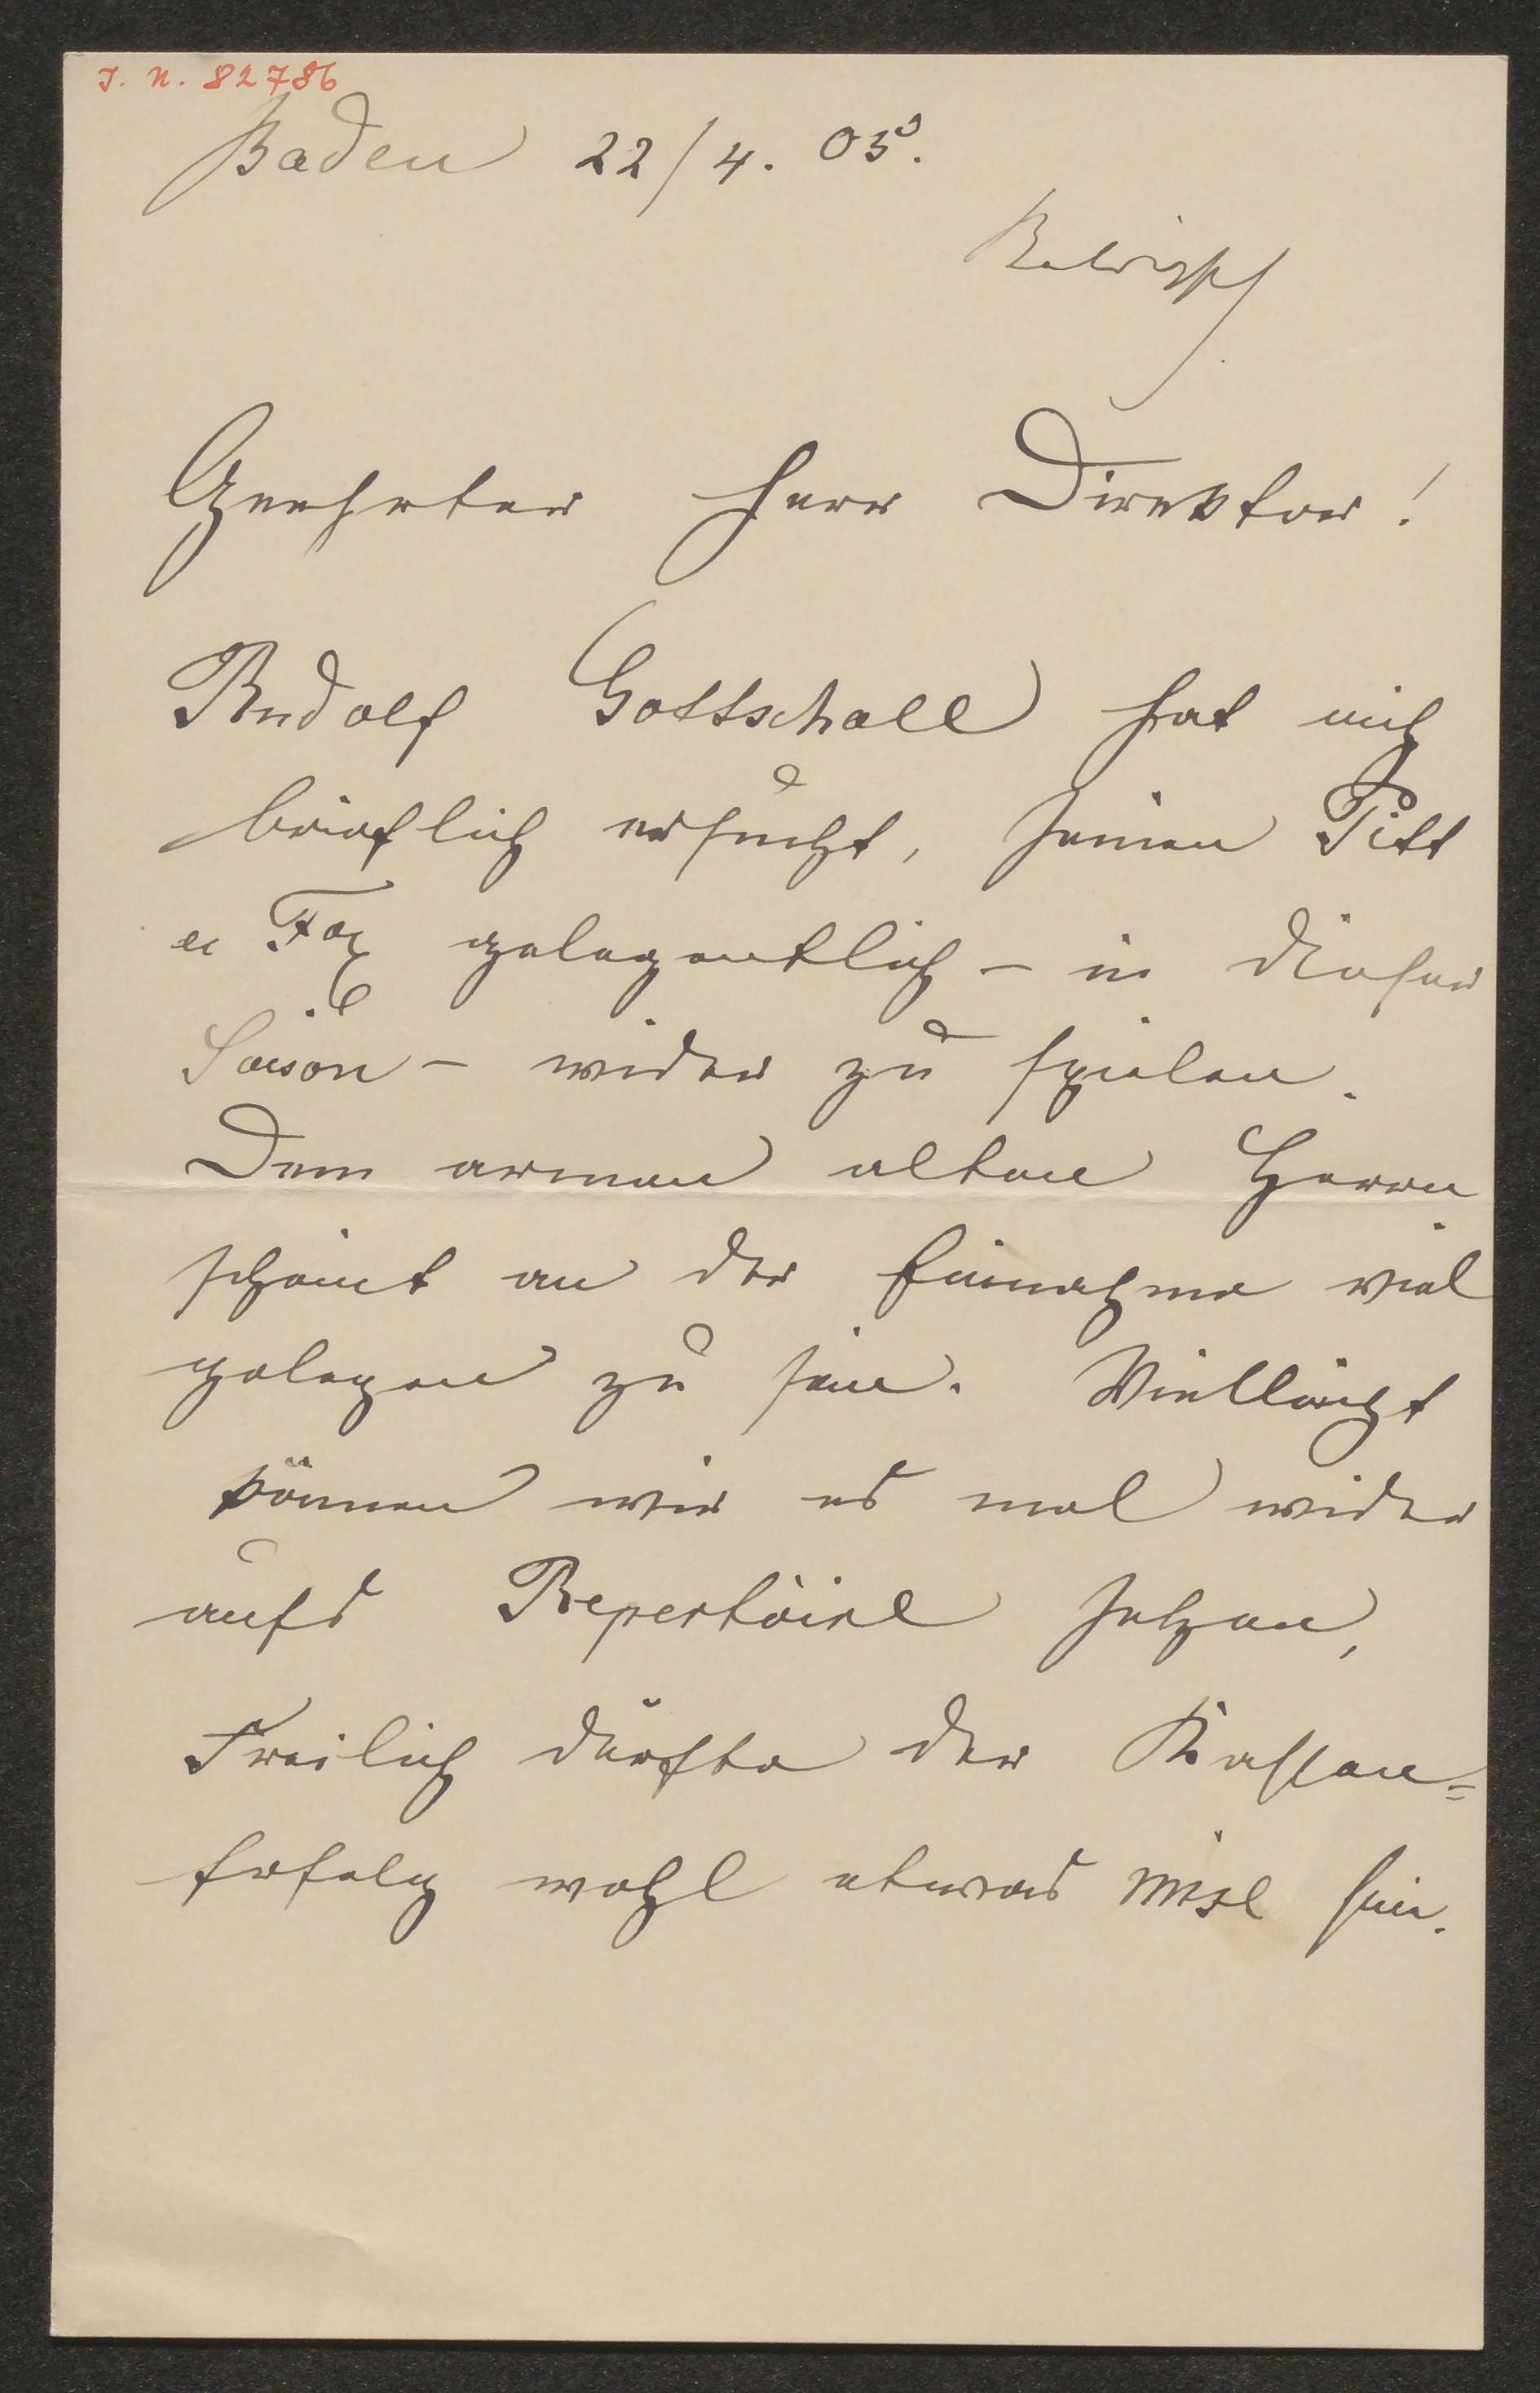 J. N. 82786
Baden 22/4. 05.
Geehrter Herr Direktor!
Rudolf Gottschall hat mich
brieflich ersucht, seinen Pitt
u Fox gelegentlich – in dieser
Saison – wider zu spielen.
Dem armen alten Herrn
scheint an der Einnahme viel
gelegen zu sein. Vielleicht
können wir es mal wider
aufs Repertoire setzen,
Freilich dürfte der Kassen=
Erfolg wohl etwas sein.